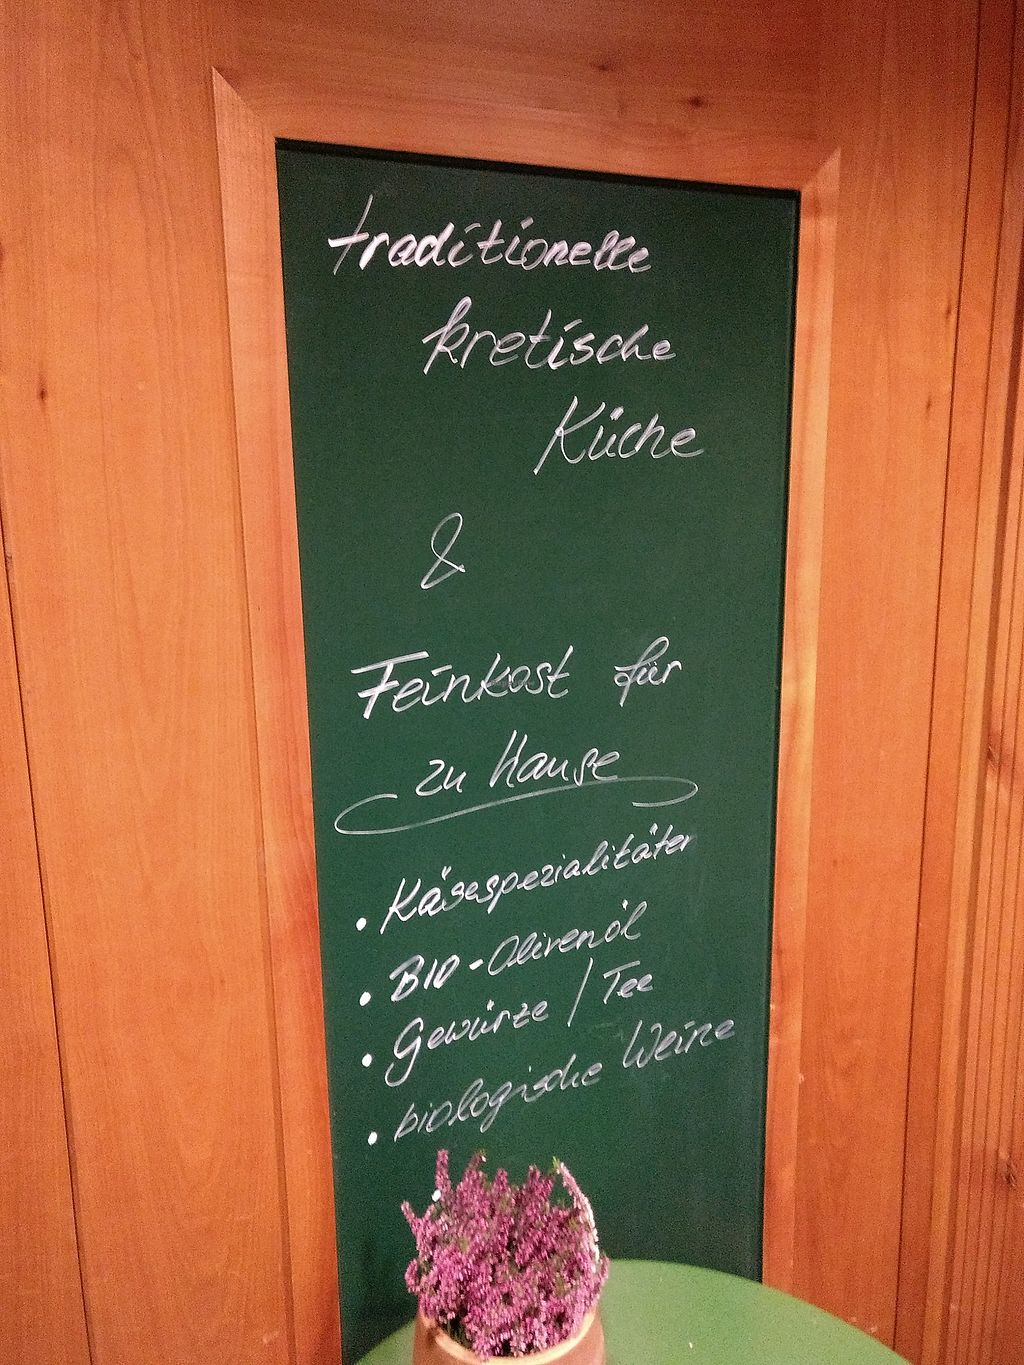 traditionelle
kretische
Küche
&
Feinkost für
zu Hause
• Käsespezialitäten
• BIO-Olivenöl
• Gewürze / Tee
• biologische Weine